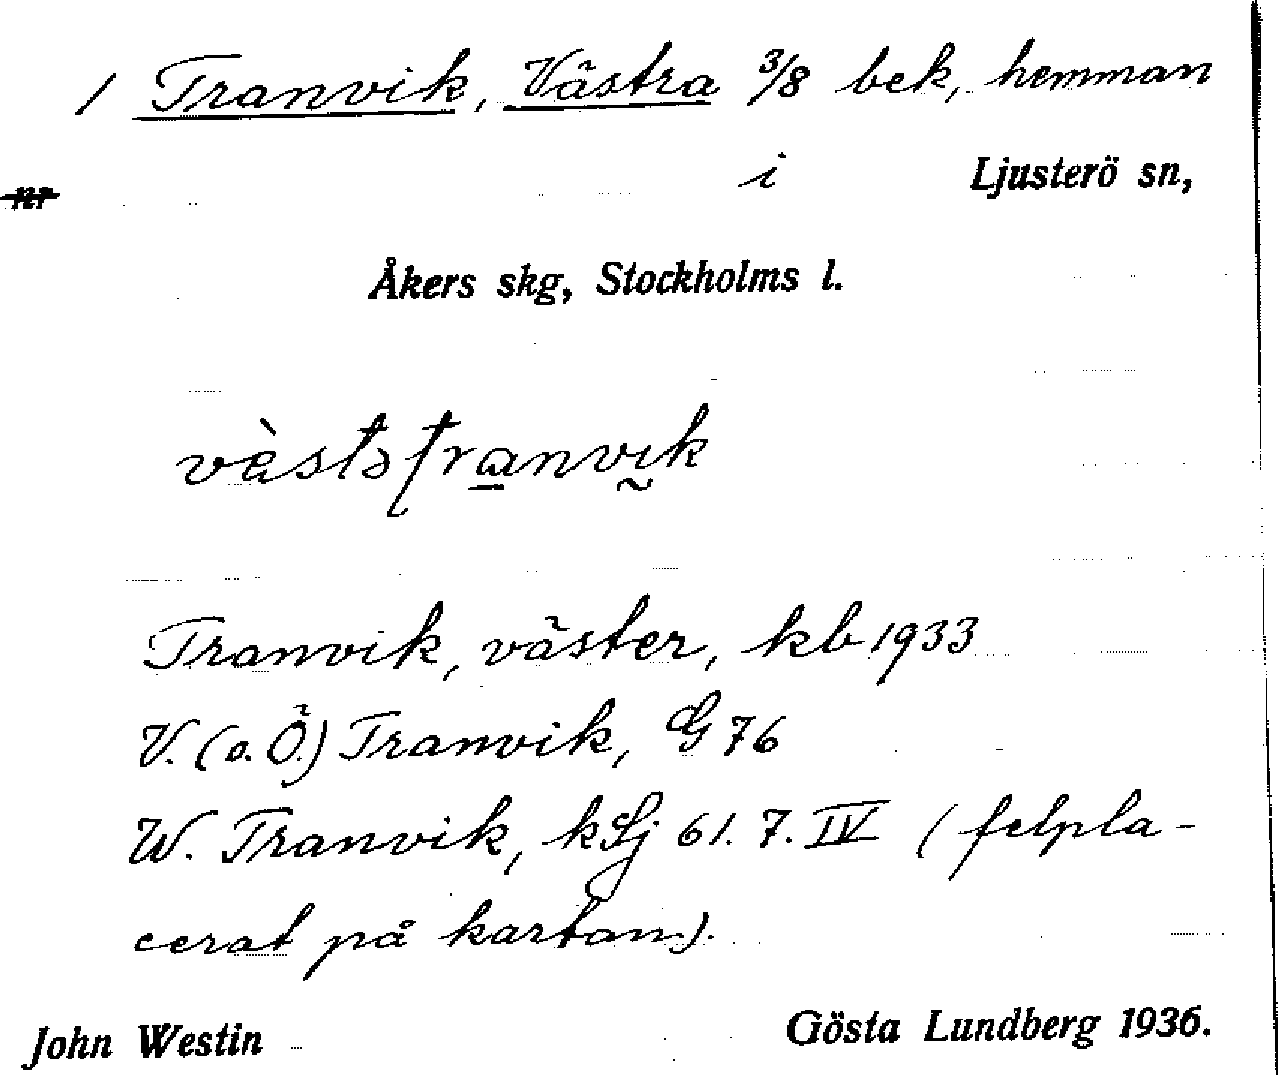 / Tranvik, Västra 3/8 bek, hemman
i Ljusterö sn,
nr
Åkers skg, Stockholms l.
Tranvik, väster, kb 1933
V. (o. Ö.) Tranvik, G 76
W. Tranvik, kLj 61. 7. IV (felpla-
cerat på kartan).
John Westin Gösta Lundberg 1936.